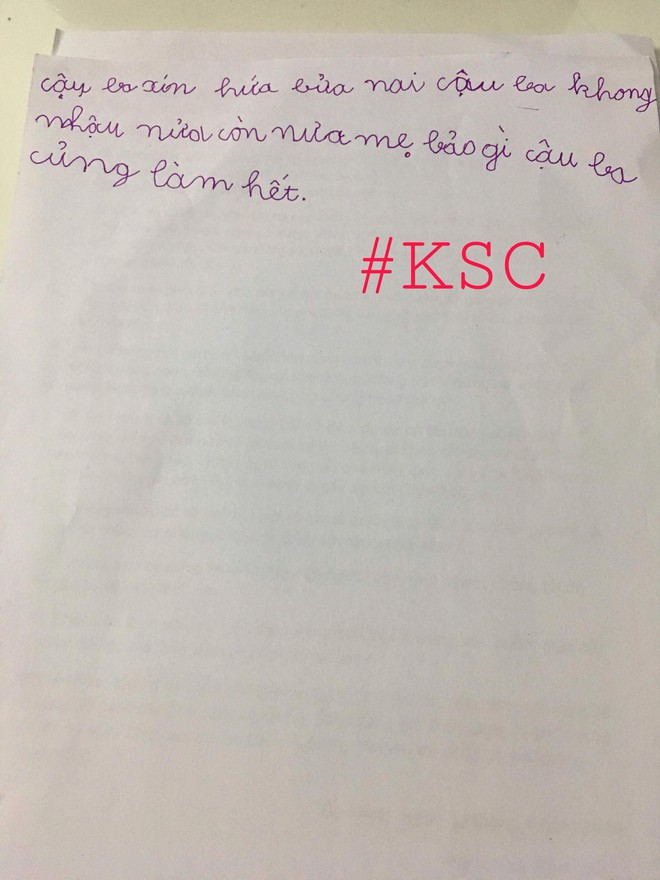 cậu ba xin hứa bửa nai cậu ba không
nhậu nửa còn nưa mẹ bảo gì cậu ba
củng làm hết.
#KSC